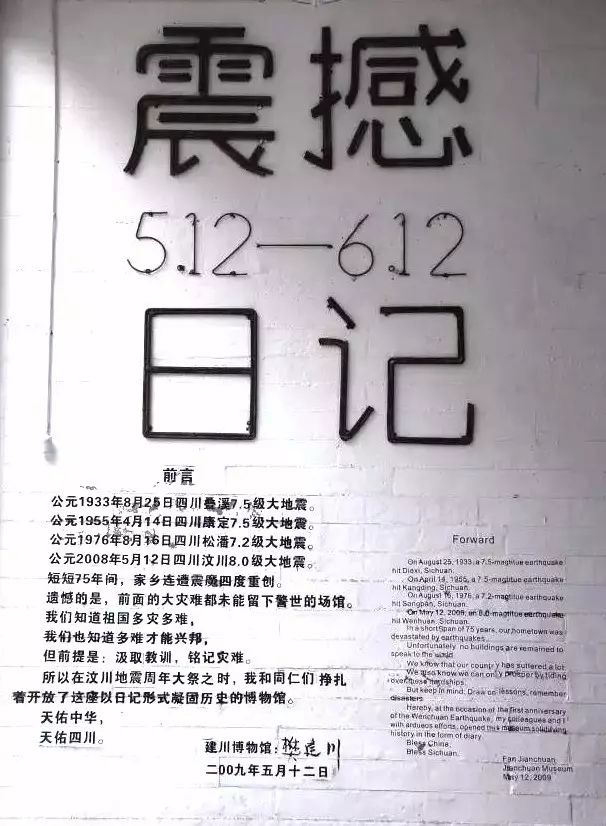 震撼
5.12—6.12
日记
前言
公元1933年8月25日四川叠溪7.5级大地震。
公元1955年4月14日四川康定7.5级大地震。
公元1976年8月16日四川松潘7.2级大地震。
公元2008年5月12日四川汶川8.0级大地震。
短短75年间，家乡连遭震魔四度重创。
遗憾的是，前面的大灾难都未能留下警世的场馆。
我们知道祖国多灾多难，
我们也知道多难才能兴邦，
但前提是：汲取教训，铭记灾难。
所以在汶川地震周年大祭之时，我和同仁们 挣扎
着开放了这座以日记形式凝固历史的博物馆。
天佑中华，
天佑四川。
建川博物馆：樊建川
二00九年五月十二日
Forward
On August 25, 1933, a 7.5-magtitue earthquake
hit Diexi, Sichuan.
On April 14, 1955, a 7.5-magtitue earthquake
hit Kangding, Sichuan.
On August 16, 1976, a 7.2-magtitue earthquake
hit Songpan, Sichuan.
On May 12, 2008, an 8.0-magtitue earthquake
hit Wenhuan, Sichuan.
In a short span of 75 years, our hometown was
devastated by earthquakes.
Unfortunately, no buildings are remained to
speak to the world.
We know that our country has suffered a lot.
We also know we can only prosper by tiding
over these hardships.
But keep in mind: Draw on lessons, remember
disasters.
Hereby, at the occasion of the first anniversary
of the Wenchuan Earthquake, my colleagues and I
with arduous efforts, opened this museum solidifying
history in the form of diary.
Bless China,
Bless Sichuan.
Fan Jianchuan
Jianchuan Museum
May 12, 2009